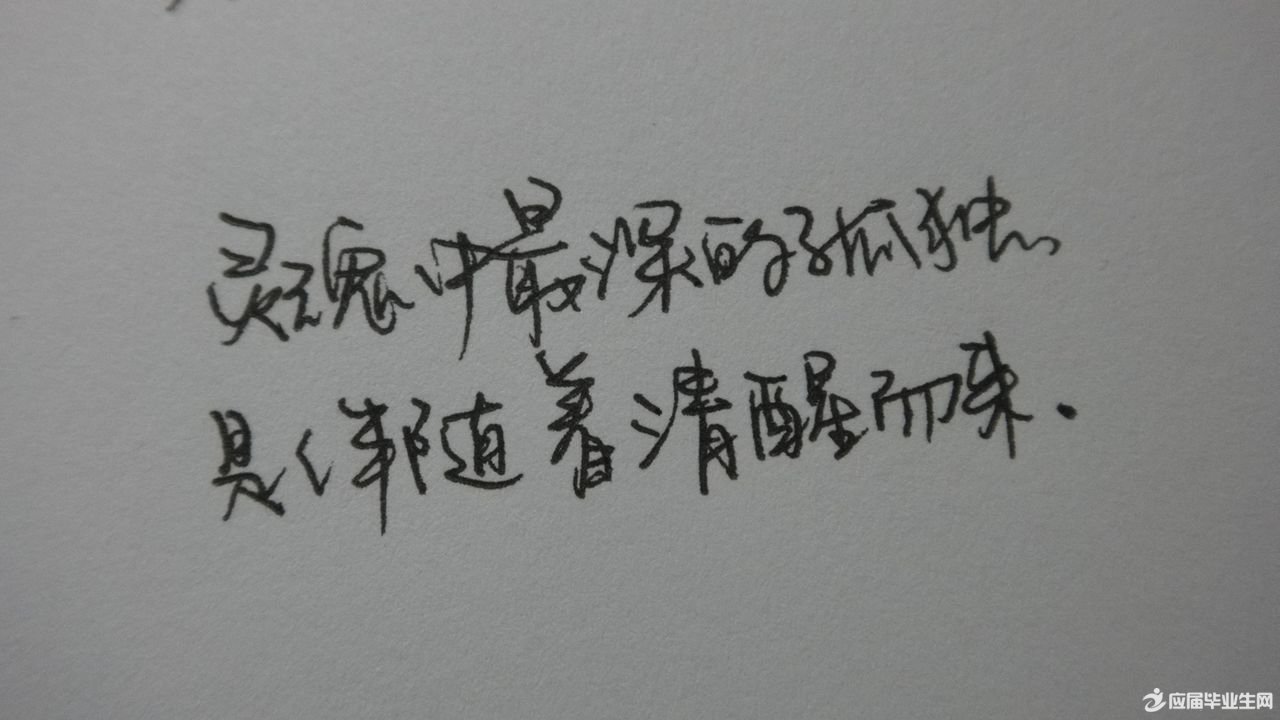 灵魂中最深的孤独、
是伴随着清醒而来.
应届毕业生网